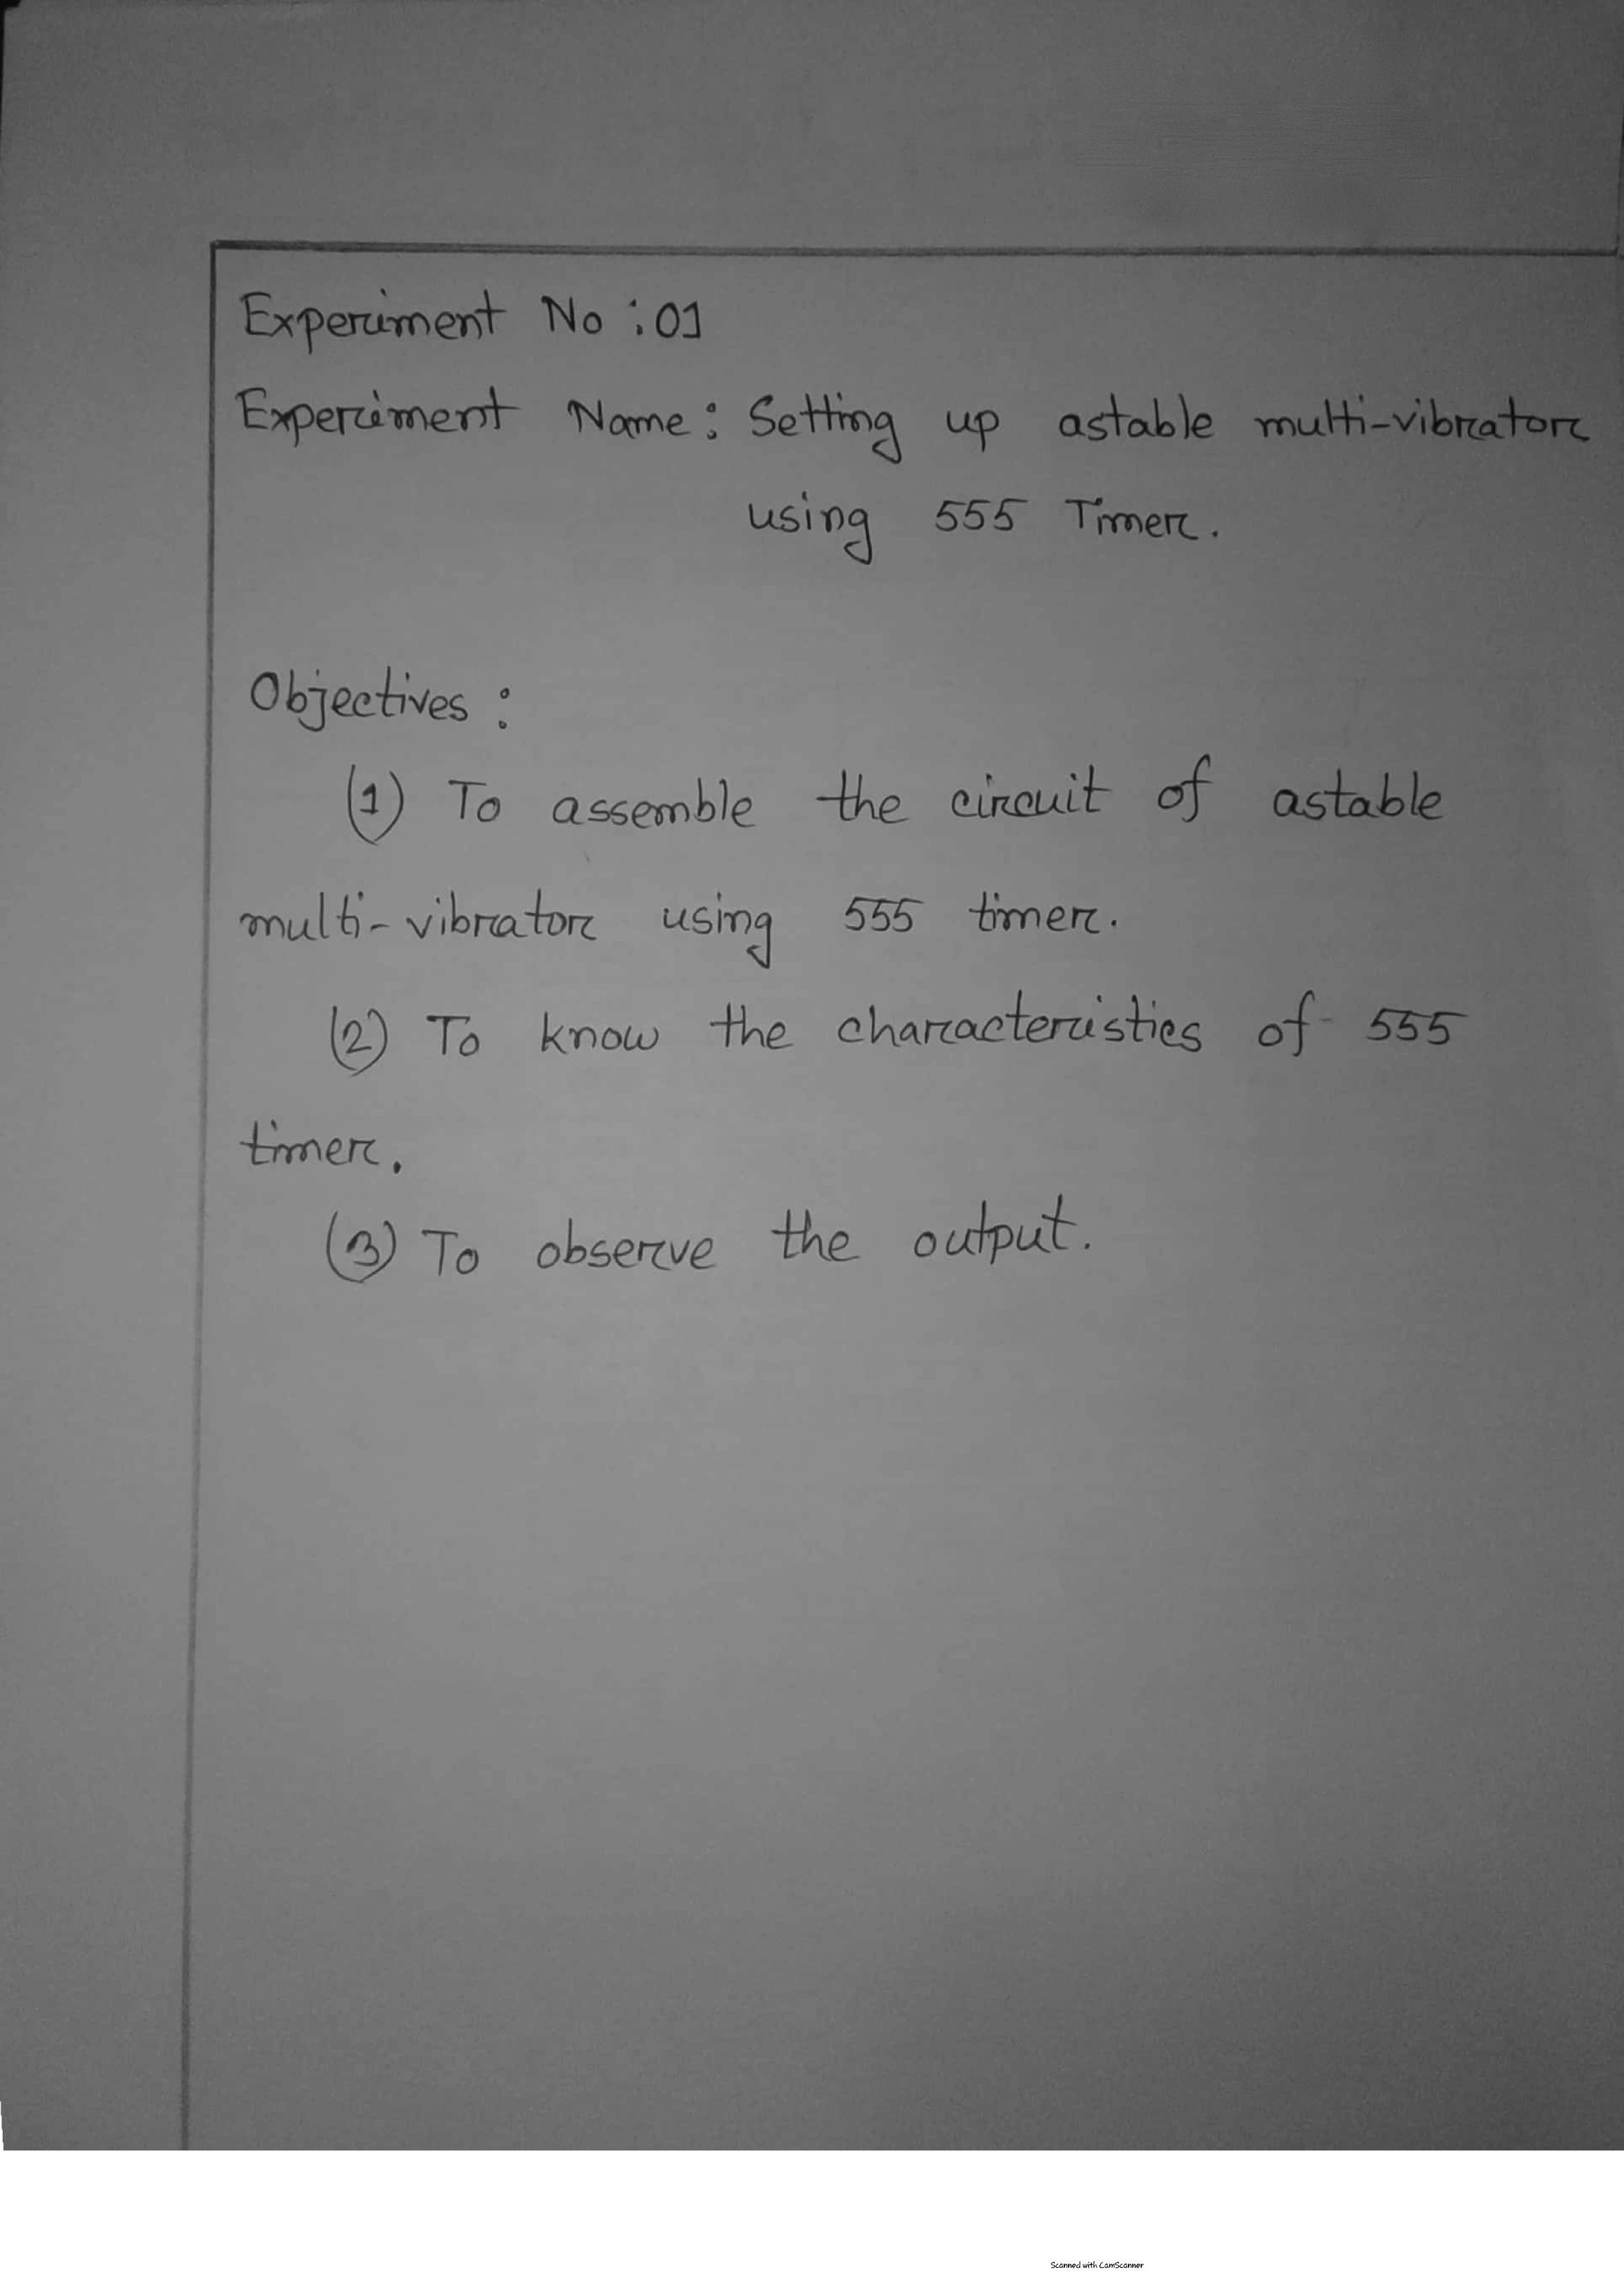 Experiment No : 01
Experiment Name : Setting up astable multi-vibrator
using 555 Timer.
Objectives :
(1) To assemble the circuit of astable
multi-vibrator using 555 timer.
(2) To know the characteristics of 555
timer.
(3) To observe the output.
Scanned with CamScanner